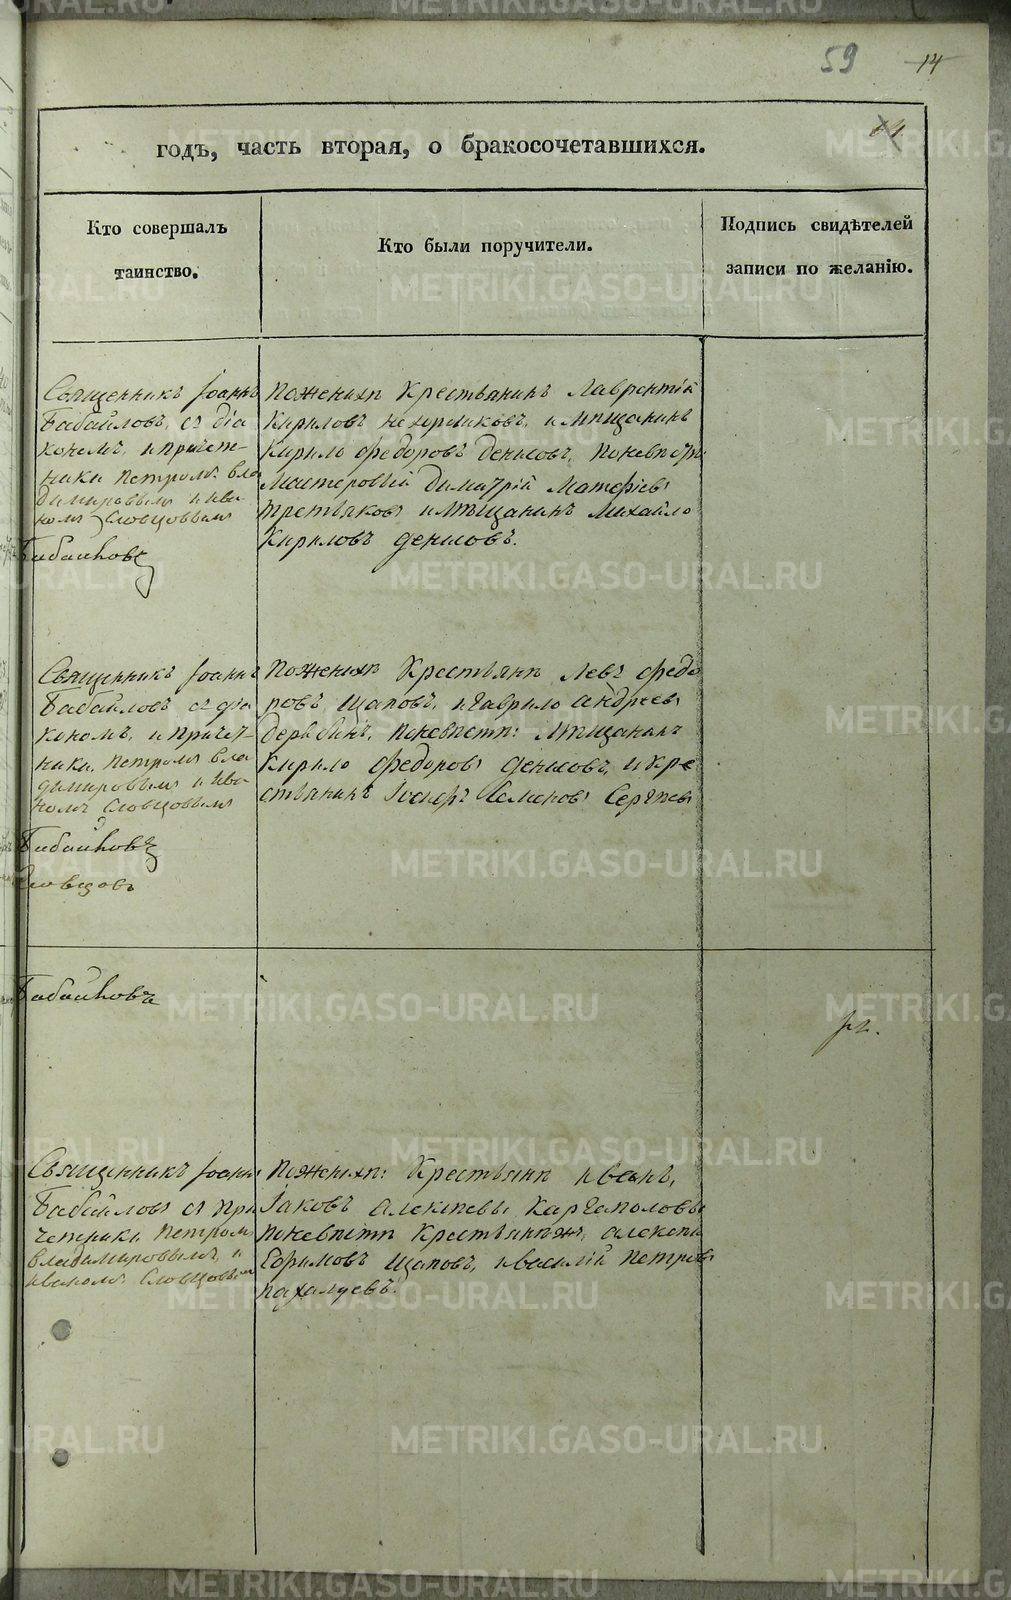 59 14
годъ, часть вторая, о бракосочетавшихся.
Кто совершалъ
таинство.
Кто были поручители.
Подпись свидѣтелей
записи по желанію.
Священникъ Іоаннъ
Бабайловъ, съ діа
кономъ, и причет-
ники Петромъ вла
димировымъ и Ива
номъ Словцовымъ
Пожених Крестьянинъ Лаврентій
Кириловъ и мѣщанинъ
Кирило федоровъ Денисовъ, Поневѣстѣ
Мастеровый Димитрій Матфіевъ
третьяковъ и Мѣщанинъ Михайло
Кириловъ Денисовъ.
Священникъ Іоаннъ
Бабайловъ съ діа
кономъ, и Причет-
ники, Петромъ вла
димировымъ и Ива
номъ Словцовымъ
Словцовъ
Поженихѣ Крестьянѣ Левъ федо
ровъ Щаповъ, и Гаврило Андреевъ
дерябинъ, Поневѣстѣ: Мѣщанинъ
Кирило федоровъ Денисовъ, и кре
стьянинъ Іосифъ Семеновъ Сергѣевъ
Священникъ Іоаннъ
Бабайловъ съ при
четники Петромъ
владимировымъ, и
иваномъ Словцовымъ
Поженихѣ: Крестьянѣ иванъ,
Іаковъ алексѣевы Каргаполовы
поневѣстѣ Крестьянѣжъ, алексѣй
Ефимовъ Щаповъ, и василій Петровъ
пахалуевъ.
METRIKI.GASO-URAL.RU